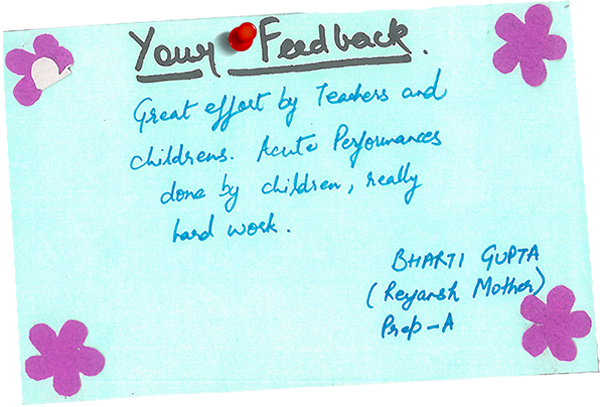 Your Feedback.
Great effort by Teachers and
childrens. Acute Performances
done by children, really
hard work.
BHARTI GUPTA
(Reyansh Mother)
Prep-A